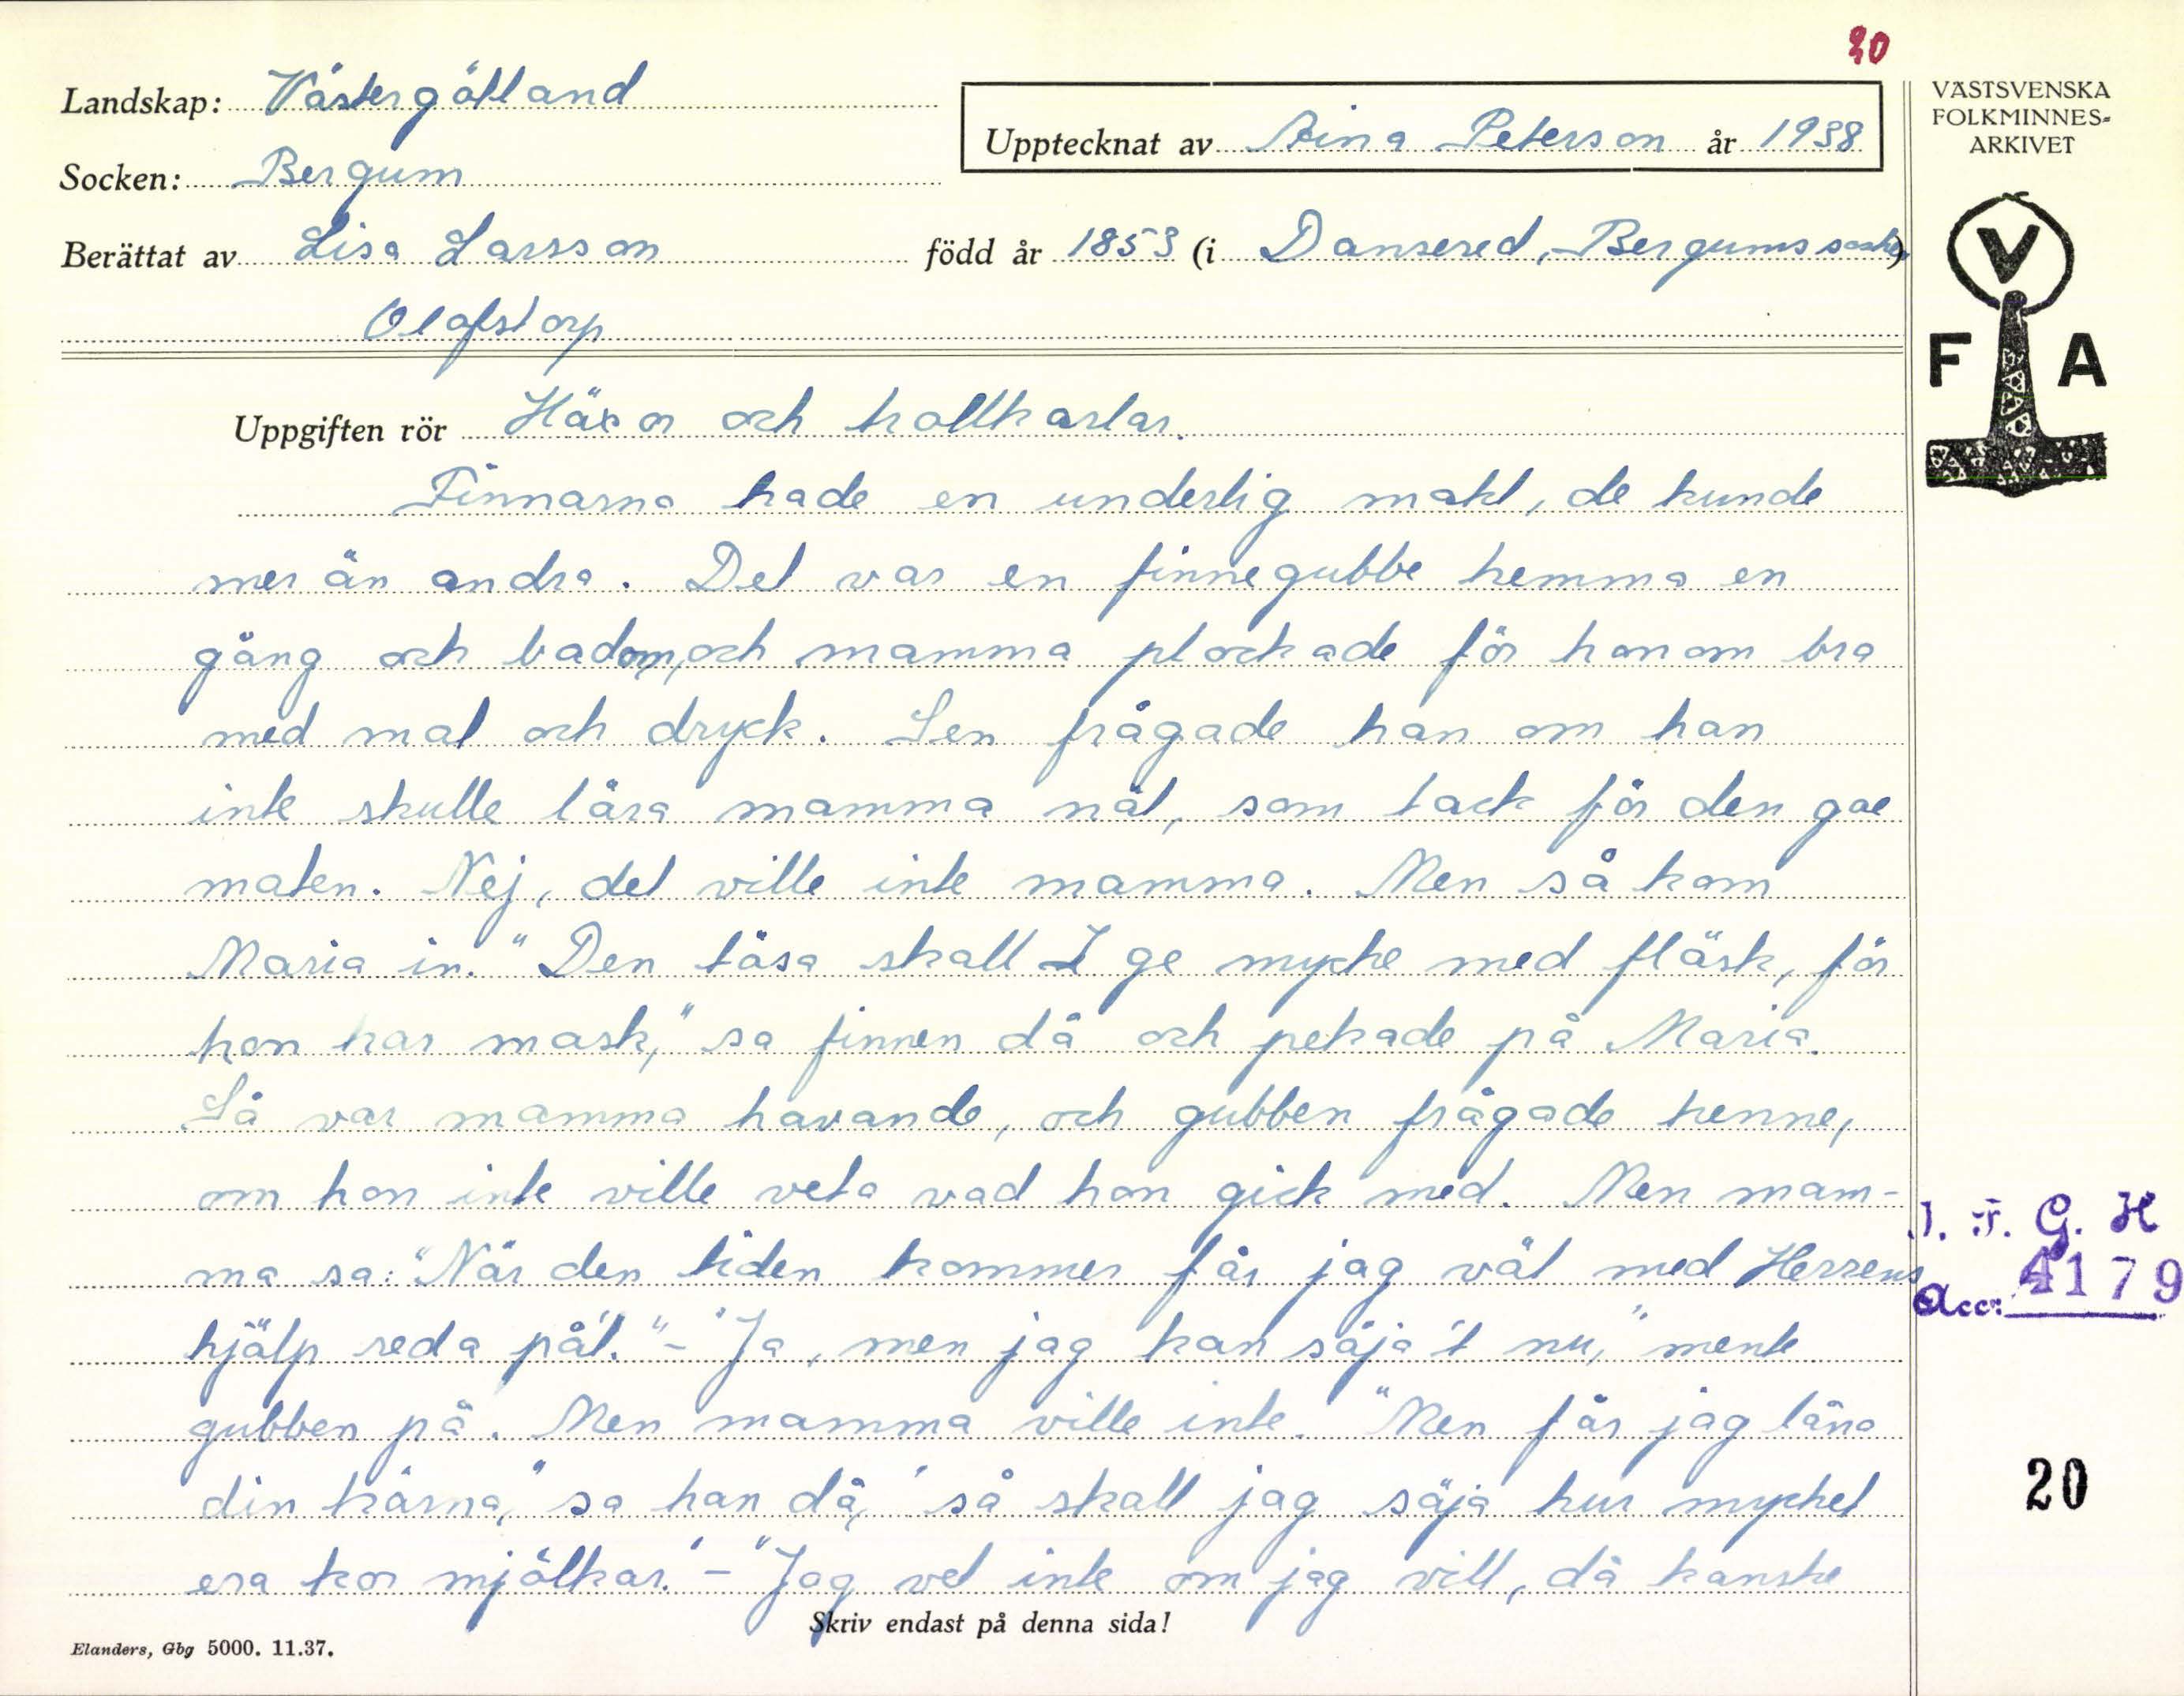 20
Landskap: Västergötland
Socken: Bergum
Upptecknat av Aina Peterson år 1938
Berättat av Lisa Larsson född år 1853 (i Dansered, Bergums socken)
Olofstorp
VÄSTSVENSKA
FOLKMINNES-
ARKIVET
V
F A
Uppgiften rör Häxor och trollkarlar.
Finnarna hade en underlig makt, de kunde
mer än andra. Det var en finnegubbe hemma en
gång och bad om, och mamma plockade för honom bra
med mat och dryck. Sen frågade han om han
inte skulle lära mamma nåt, som tack för den goe
maten. Nej, det ville inte mamma. Men så kom
Maria in. "Den täsa skall I ge mycke med fläsk, för
hon har mask," sa finnen då och pekade på Maria.
Så var mamma havande, och gubben frågade henne,
om hon inte ville veta vad hon gick med. Men mam-
ma sa: "När den tiden kommer får jag väl med Herrens
hjälp reda på't." - "Ja, men jag kan säja't nu," mente
gubben på. Men mamma ville inte. "Men får jag låna
din kärna," sa han då, "så skall jag säja hur mycket
era kor mjölkar." - "Jag vet inte om jag vill, då kanske
Skriv endast på denna sida!
Elanders, Gbg 5000. 11.37.
I. F. G. H
Acc: 4179
20